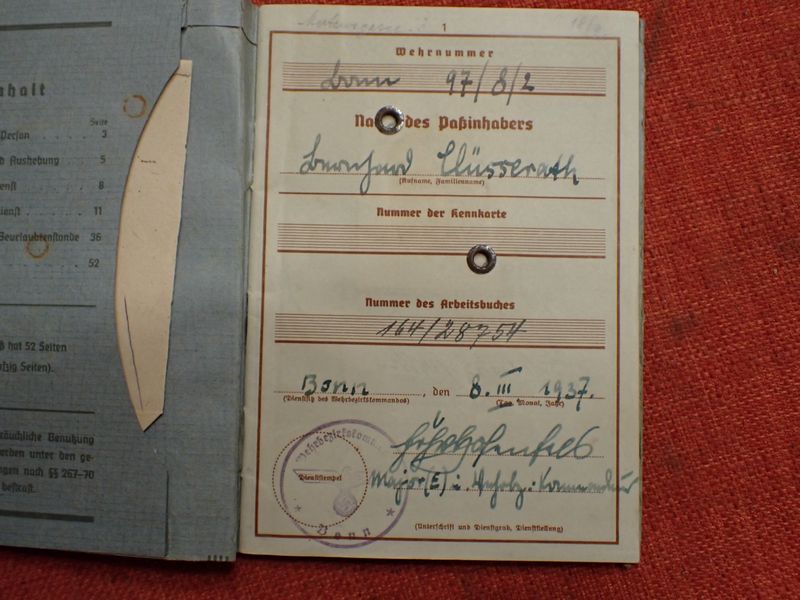 nhalt
Seite
Person . . . 3
d Aushebung . . . 5
enst . . . 8
ienst . . . 11
Beurlaubtenstande 36
. . . 52
ß hat 52 Seiten
fzig Seiten).
räuchliche Benutzung
erden unter den ge-
ngen nach §§ 267–70
bestraft.
1
Wehrnummer
Bonn 97/8/2
Na des Paßinhabers
Bernhard Clüsserath
(Rufname, Familienname)
Nummer der Kennkarte
Nummer des Arbeitsbuches
164/28754
Bonn, den 8. III 1937.
(Dienstsitz des Wehrbezirkskommandos) (Tag, Monat, Jahr)
Wehrbezirkskomm
Dienststempel
Bonn
Major (E) u. Wehrbz.-Kommandeur
(Unterschrift und Dienstgrad, Dienststellung)